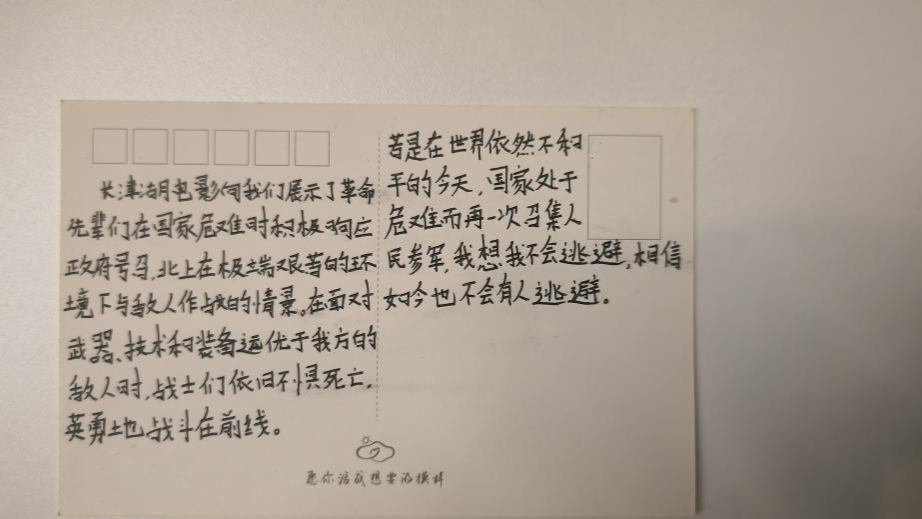 长津湖电影向我们展示了革命
先辈们在国家危难时积极响应
政府号召,北上在极端艰苦的环
境下与敌人作战的情景。在面对
武器、技术和装备远优于我方的
敌人时,战士们依旧不惧死亡,
英勇地战斗在前线。
若是在世界依然不和
平的今天,国家处于
危难而再一次召集人
民参军,我想我不会逃避,相信
如今也不会有人逃避。
愿你活成想要的模样